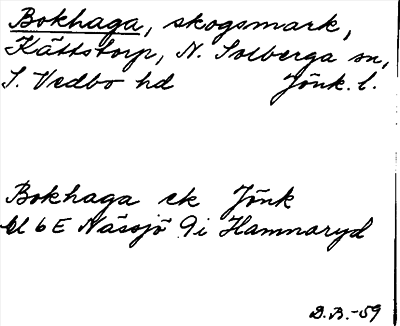 Bokhaga, skogsmark,
Kättstorp, N. Solberga sn,
S. Vedbo hd Jönk. l.
Bokhaga ek Jönk
bl 6E Nässjö 9i Hamnaryd
D.B.-59